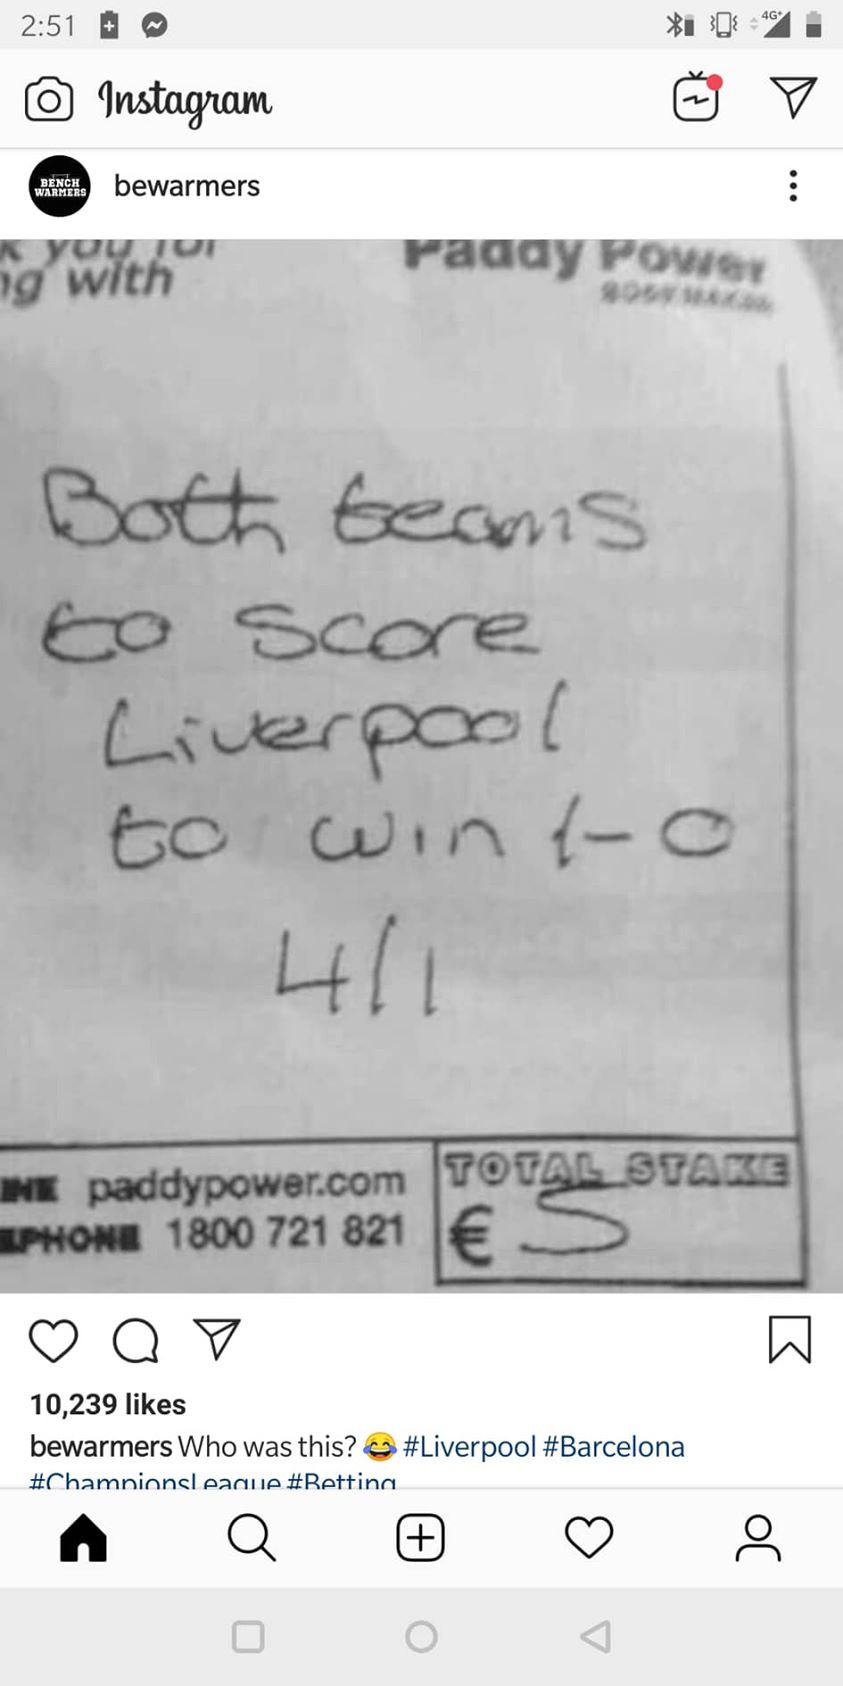 2:51
4G+
Instagram
BENCH
WARMERS
bewarmers
you for
ng with
Paddy Power
BOOKMAKER
Both teams
to score
Liverpool
to win 1-0
4/1
paddypower.com
1800 721 821
TOTAL STAKE
€ 5
10,239 likes
bewarmers Who was this? 😂 #Liverpool #Barcelona
#ChampionsLeague #Betting